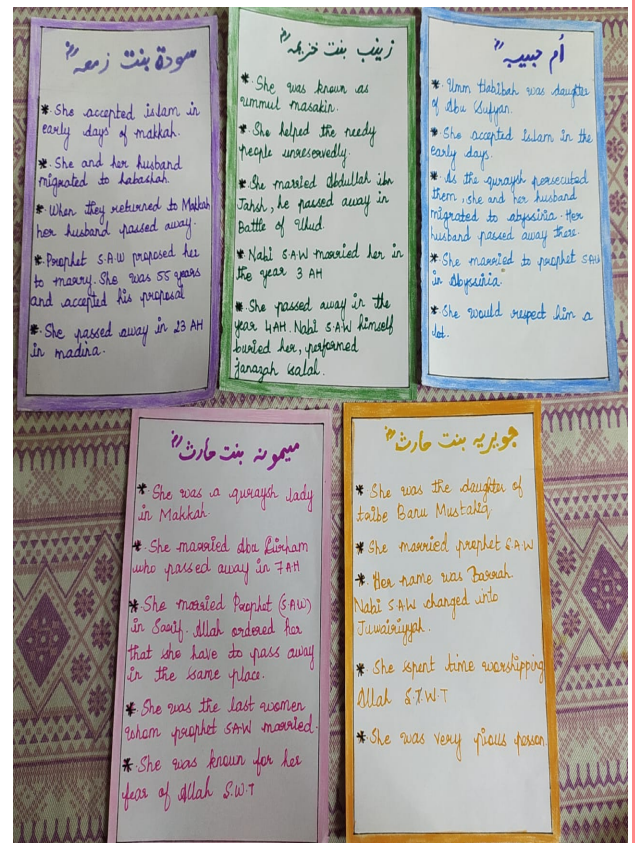 سودة بنت زمعہؓ
* She accepted islam in
early days of makkah.
* She and her husband
migrated to habashah.
* When they returned to Makkah
her husband passed away.
* Prophet S.A.W proposed her
to marry. She was 55 years
and accepted his proposal
* She passed away in 23 AH
in madina.
زینب بنت خزیمہؓ
* She was known as
ummul masakin.
* She helped the needy
people unreservedly.
* She married Abdullah ibn
Jahsh, he passed away in
Battle of Uhud.
* Nabi S.A.W married her in
the year 3 AH
* She passed away in the
year 4AH. Nabi S.A.W himself
buried her, performed
janazah salal.
أم حبیبہؓ
* Umm Habibah was daughter
of Abu Sufyan.
* She accepted Islam in the
early days.
* As the quraysh persecuted
them, she and her husband
migrated to abyssinia. Her
husband passed away there.
* She married to prophet SAW
in Abyssinia.
* She would respect him a
lot.
میمونہ بنت حارثؓ
* She was a quraysh lady
in Makkah.
* She married Abu Ruhham
who passed away in 7AH
* She married Prophet (S.A.W)
in Sarif. Allah ordered her
that she have to pass away
in the same place.
* She was the last women
whom prophet SAW married.
* She was known for her
fear of Allah S.W.T
جویریہ بنت حارثؓ
* She was the daughter of
tribe Banu Mustaliq.
* She married prophet S.A.W
* Her name was Barrah.
Nabi S.A.W changed into
Juwairiyyah.
* She spent time worshipping
Allah S.T.W.T
* She was very pious person.